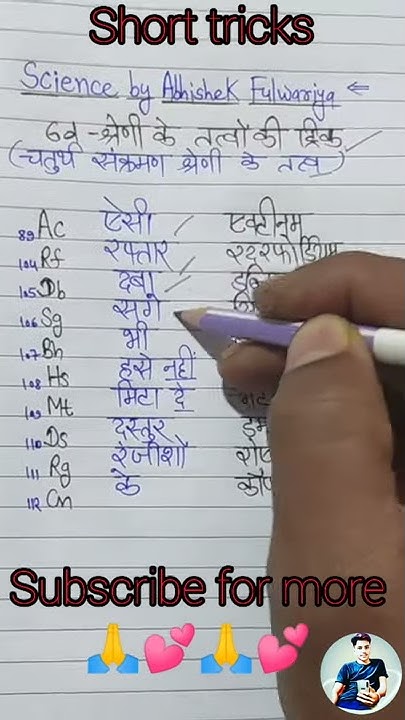 Short tricks
Science by Abhishek Fulwariya ←
6d - श्रेणी के तत्वों की ट्रिक
(चतुर्थ संक्रमण श्रेणी के तत्व)
89 Ac ऐसी एक्टीनम
104 Rf रफ्तार
105 Db दबा
106 Sg सगे
107 Bh भी
108 Hs हसे नहीं
109 Mt मिटा दे
110 Ds दस्तूर
111 Rg रंजीशों
112 Cn के
Subscribe for more
🙏💕🙏💕